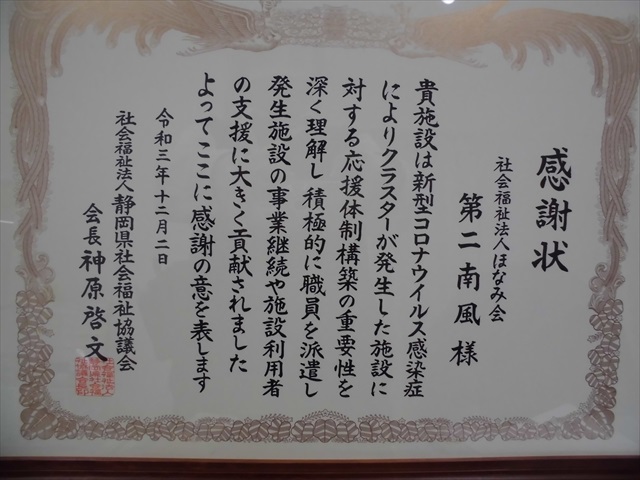 感謝状
社会福祉法人ほなみ会
第二南風様
貴施設は新型コロナウイルス感染症
によりクラスターが発生した施設に
対する応援体制構築の重要性を
深く理解し積極的に職員を派遣し
発生施設の事業継続や施設利用者
の支援に大きく貢献されました
よってここに感謝の意を表します
令和三年十二月二日
社会福祉法人静岡県社会福祉協議会
会長神原啓文